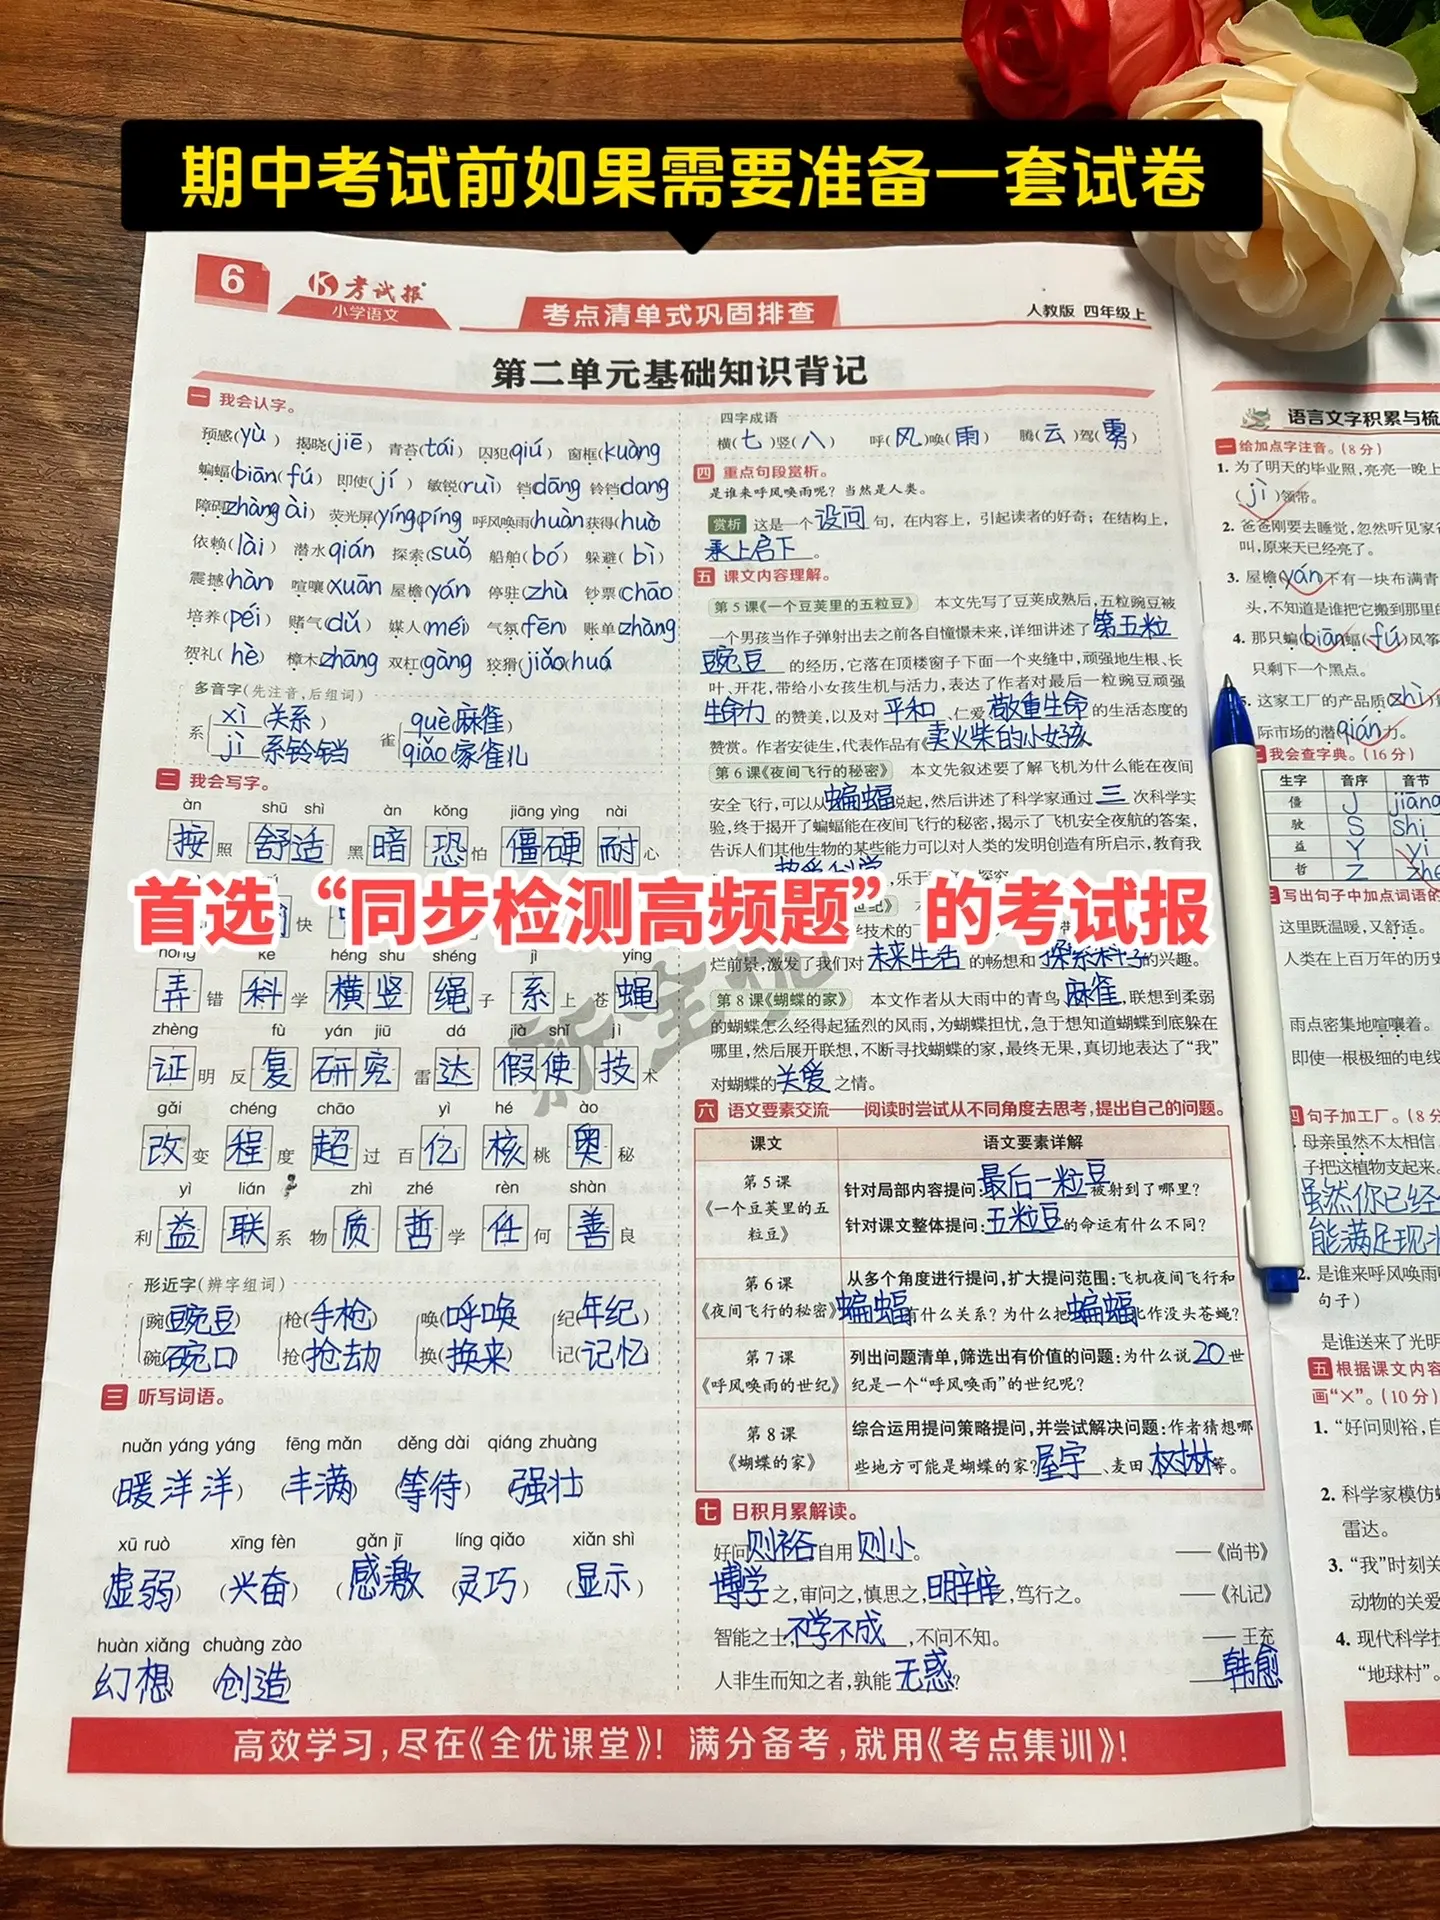 期中考试前如果需要准备一套试卷
6
考试报
小学语文
考点清单式巩固排查
人教版 四年级上
第二单元基础知识背记
一 我会认字。
预感(yù) 揭晓(jiē) 青苔(tái) 囚犯(qiú) 窗框(kuàng
蝙蝠(biān(fú) 即使(jí) 敏锐(ruì) 铛dāng 铃铛dang
障碍zhàng ài) 荧光屏(yíngpíng 呼风唤雨(huàn 获得(huò
依赖(lài) 潜水qián 探索(suǒ 船舶(bó) 躲避(bì)
震撼hàn 喧嚷xuān 屋檐(yán 停驻(zhù 钞票(chāo
培养(péi) 赌气(dǔ) 媒人(méi) 气氛(fēn) 账单zhàng
贺礼(hè) 樟木zhāng 双杠(gàng 狡猾(jiǎo(huá
多音字(先注音,后组词)
系 xì(关系) 雀 què(麻雀)
jì(系铃铛 qiǎo(家雀儿
二 我会写字。
àn shū shì àn kǒng jiāng yìng nài
按照 舒适 黑暗 恐怕 僵硬 耐心
快
首选“同步检测高频题”的考试报
nòng kē héng shù shéng jì ying
弄错 科学 横竖 绳子 系上 苍蝇
zhèng fù yán jiū dá jià shǐ jì
证明 反复 研究 雷达 假使 技术
gǎi chéng chāo yì hé ào
改变 程度 超过 百亿 核桃 奥秘
yì lián zhì zhé rèn shàn
利益 联系 物质 哲学 任何 善良
形近字(辨字组词)
豌(豌豆) 枪(手枪) 唤(呼唤 纪(年纪)
碗(碗口 抢(抢劫 换(换来) 记(记忆
三 听写词语。
nuǎn yáng yáng fēng mǎn děng dài qiáng zhuàng
(暖洋洋) (丰满) (等待) (强壮
xū ruò xīng fèn gǎn jī líng qiǎo xiǎn shì
(虚弱) (兴奋) (感激 (灵巧) (显示)
huàn xiǎng chuàng zào
幻想) (创造
四字成语
横(七)竖(八) 呼(风)唤(雨) 腾(云)驾(雾)
四 重点句段赏析。
是谁来呼风唤雨呢？当然是人类。
赏析 这是一个设问句，在内容上，引起读者的好奇；在结构上，
承上启下。
五 课文内容理解。
第5课《一个豆荚里的五粒豆》 本文先写了豆荚成熟后,五粒豌豆被
一个男孩当作子弹射出去之前各自憧憬未来,详细讲述了第五粒
豌豆的经历,它落在顶楼窗子下面一个夹缝中,顽强地生根、长
叶、开花,带给小女孩生机与活力,表达了作者对最后一粒豌豆顽强
生命力的赞美,以及对平和、仁爱、敬重生命的生活态度的
赞赏。作者安徒生,代表作品有《卖火柴的小女孩
第6课《夜间飞行的秘密》 本文先叙述要了解飞机为什么能在夜间
安全飞行,可以从蝙蝠说起,然后讲述了科学家通过三次科学实
验,终于揭开了蝙蝠能在夜间飞行的秘密,揭示了飞机安全夜航的答案,
告诉人们其他生物的某些能力可以对人类的发明创造有所启示,教育我
烂前景,激发了我们对未来生活的畅想和探索科学的兴趣。
第8课《蝴蝶的家》 本文作者从大雨中的青鸟、麻雀,联想到柔弱
的蝴蝶怎么经得起猛烈的风雨,为蝴蝶担忧,急于想知道蝴蝶到底躲在
哪里,然后展开联想,不断寻找蝴蝶的家,最终无果,真切地表达了“我”
对蝴蝶的关爱之情。
六 语文要素交流——阅读时尝试从不同角度去思考,提出自己的问题。
课文 语文要素详解
第5课《一个豆荚里的五粒豆》
针对局部内容提问:最后一粒豆被射到了哪里？
针对课文整体提问:五粒豆的命运有什么不同？
第6课《夜间飞行的秘密》
从多个角度进行提问,扩大提问范围:飞机夜间飞行和
蝙蝠有什么关系？为什么把蝙蝠比作没头苍蝇？
第7课《呼风唤雨的世纪》
列出问题清单,筛选出有价值的问题:为什么说20世
纪是一个“呼风唤雨”的世纪呢？
第8课《蝴蝶的家》
综合运用提问策略提问,并尝试解决问题:作者猜想哪
些地方可能是蝴蝶的家？屋宇、麦田、树林等。
七 日积月累解读。
好问则裕,自用则小。 ——《尚书》
博学之,审问之,慎思之,明辨之,笃行之。 ——《礼记》
智能之士,不学不成,不问不知。 ——王充
人非生而知之者,孰能无惑? ——韩愈
高效学习,尽在《全优课堂》！ 满分备考,就用《考点集训》！
语言文字积累与梳
一 给加点字注音。(8分)
1. 为了明天的毕业照,亮亮一晚上
(jì)领带。
2. 爸爸刚要去睡觉,忽然听见家
叫,原来天已经亮了。
3. 屋檐(yán)下有一块布满青
头,不知道是谁把它搬到那里的
4. 那只蝙(biān)蝠(fú)风筝
只剩下一个黑点。
5. 这家工厂的产品质(zhì)
际市场的潜(qián)力。
二 我会查字典。(16分)
生字 音序 音节
僵 J jiāng
驶 S shǐ
益 Y yì
哲 Z zhé
三 写出句子中加点词语的
这里既温暖,又舒适。
人类在上百万年的历史
雨点密集地喧嚷着。
即使一根极细的电线
四 句子加工厂。(8分
母亲虽然不太相信
子把这植物支起来。
虽然你已经
能满足现状
2. 是谁来呼风唤雨
句子)
是谁送来了光明
五 根据课文内容
画“×”。(10分)
1. “好问则裕,自
2. 科学家模仿蝙
雷达。
3. “我”时刻关
动物的关爱
4. 现代科学技
“地球村”。